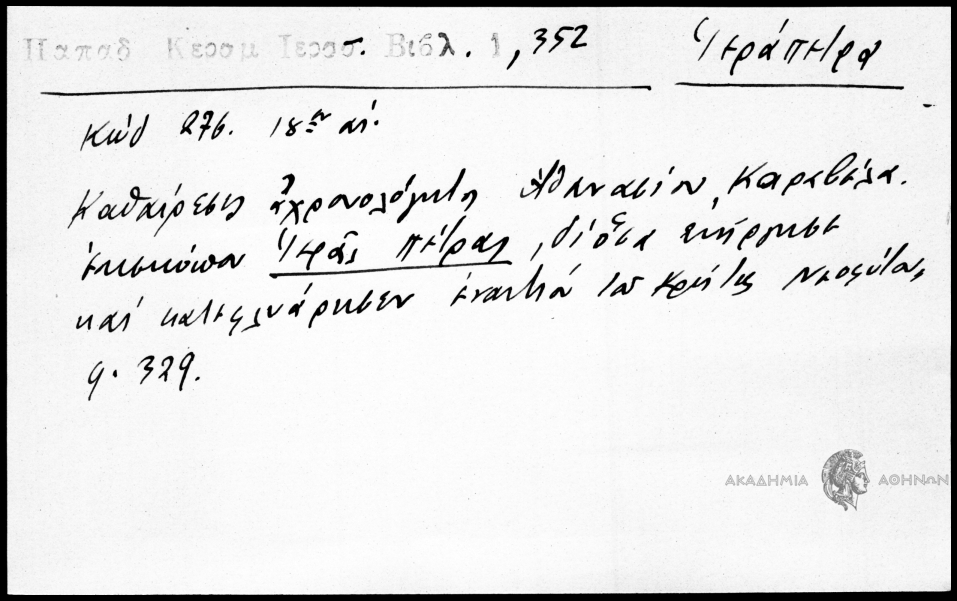 Παπαδ Κεραμ Ιεροσ. Βιβλ. 1, 352 Ἱεράπετρα
Κώδ 276. 18ης αἰ.
Καθαίρεσις ἀχρονολόγητος Ἀθανασίου Καραβέλα.
ἐπισκόπου Ἱερᾶς πέτρας, δι' ὅσα ἐνήργησε
καί κατεφλυάρησεν ἐναντίον τοῦ Κρήτης
φ. 329.
ΑΚΑΔΗΜΙΑ ΑΘΗΝΩΝ